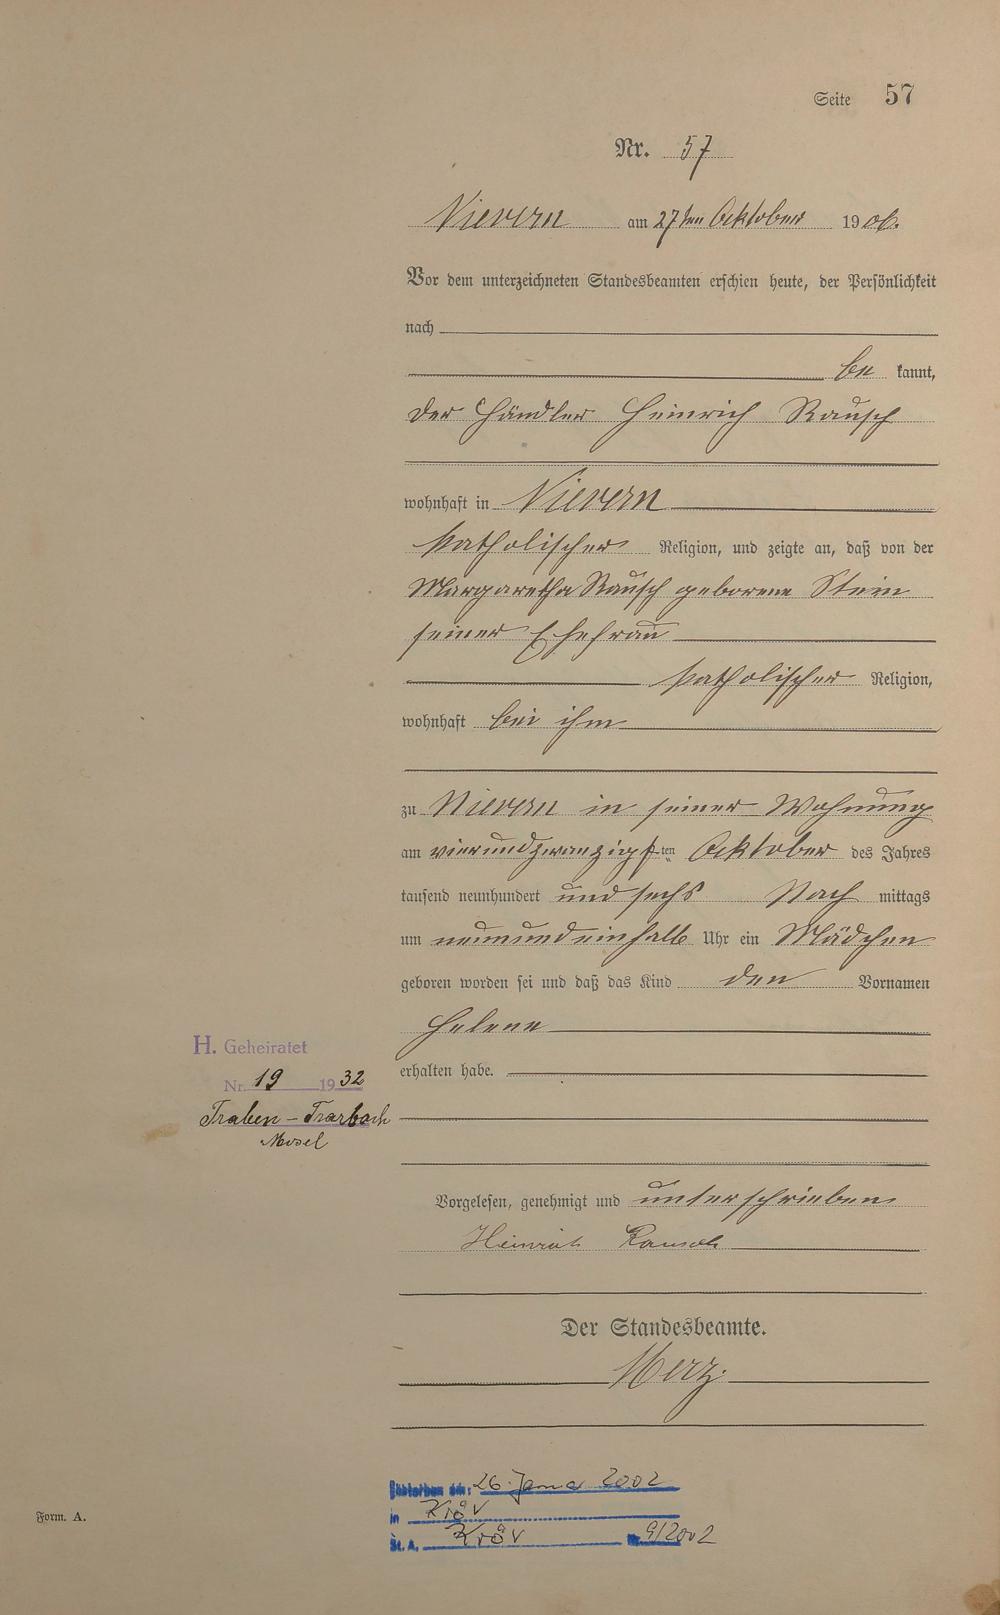 Seite 57
Nr. 57
Nievern am 27ten Oktober 1906.
Vor dem unterzeichneten Standesbeamten erschien heute, der Persönlichkeit
nach
be kannt,
der Händler Heinrich Rausch
wohnhaft in Nievern
katholischer Religion, und zeigte an, daß von der
Margaretha Rausch geborene Stein
seiner Ehefrau
katholischer Religion,
wohnhaft bei ihm
zu Nievern in seiner Wohnung
am vierundzwanzigsten Oktober des Jahres
tausend neunhundert und sechs Nach mittags
um neunundeinhalb Uhr ein Mädchen
geboren worden sei und daß das Kind den Vornamen
Helene
H. Geheiratet
erhalten habe.
Nr. 19 1932
Traben-Trarbach
Mosel
Vorgelesen, genehmigt und unterschrieben
Heinrich Rausch
Der Standesbeamte.
Merz.
Gestorben am: 26. Januar 2002
in Kröv
St. A. Kröv Nr. 9/2002
Form. A.